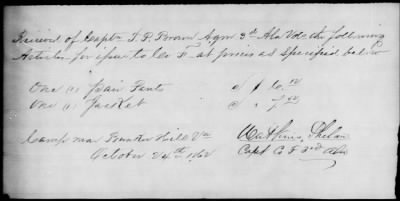 Received of Capt J. P. Brown Aqm 3rd Ala Vols the following
Articles for issue to Co F at prices as specified below
One (1) Pair Pants
One (1) Jacket
Camp near Bunker Hill Va
October 24th 1862
Watkins Phelan
Capt Co F 3rd Ala